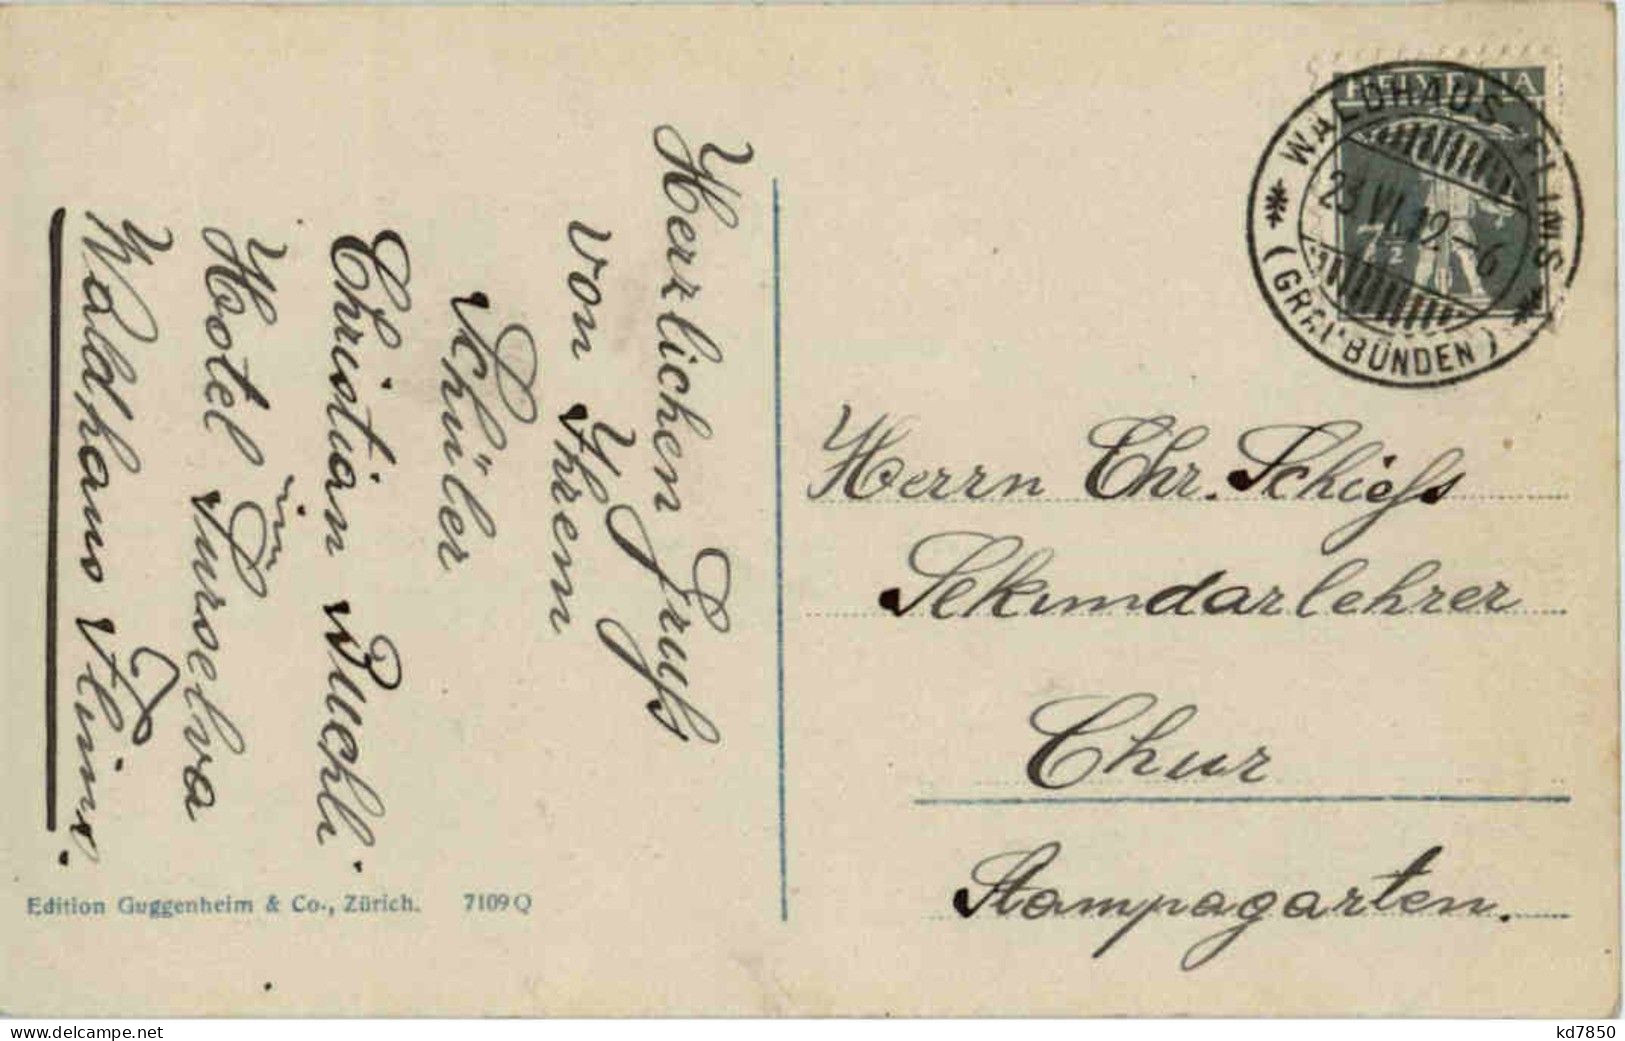 Herzlichen Gruß
von Ihrem
Schüler
Christian Buchli
Hotel Surselva
in
Waldhaus Flims.
Edition Guggenheim & Co., Zürich. 7109 Q
HELVETIA
7½
* WALDHAUS-FLIMS *
(GRAUBÜNDEN)
23.VI.19.-6
Herrn Chr. Schieß
Sekundarlehrer
Chur
Stampagarten.
www.delcampe.net
kd7850